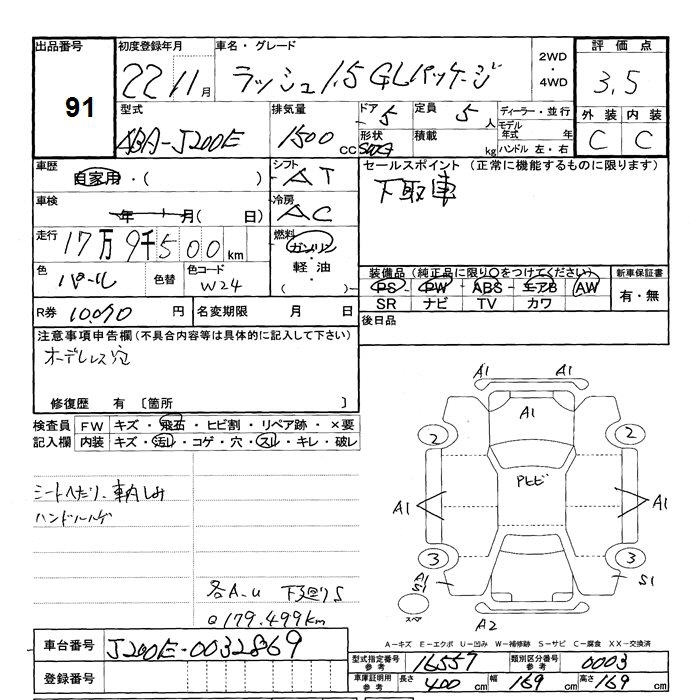 出品番号 初度登録年月 車名・グレード 2WD・4WD 評価点
91 22 11月 ラッシュ1.5 GLパッケージ 3.5
型式 排気量 ドア 5 定員 5人 ディーラー・並行 外装 内装
ABA-J200E 1500cc 形状 積載 kg モデル年式 年 ハンドル 左・右 C C
車歴 自家用・( ) シフト AT セールスポイント (正常に機能するものに限ります)
下取車
車検 年 月( 日) 冷房 AC
走行 17万9千500km 燃料 ガソリン・軽油・( )
色 パール 色替 色コード W24
装備品 (純正品に限り○をつけてください) 新車保証書
PS・PW・ABS・エアB・AW 有・無
SR ナビ TV カワ
R券 10,090円 名変期限 月 日 後日品
注意事項申告欄 (不具合内容等は具体的に記入して下さい)
オーデレス穴
修復歴 有 〔箇所 〕
検査員記入欄 FW キズ・飛石・ヒビ割・リペア跡・×要
内装 キズ・汚レ・コゲ・穴・スレ・キレ・破レ
シートヘたり、車内しみ
ハンドルハゲ
各A.U 下廻りS
179.499km
A1 A1
A1
2 2
Pヒビ
A1 A1
3 3
A1 S1 S1
スペア
A2
A-キズ E-エクボ U-凹み W-補修跡 S-サビ C-腐食 XX-交換済
車台番号 J200E-0032869
登録番号
型式指定番号 参考 16557 類別区分番号 参考 0003
車庫証明用 参考 長さ 400cm 幅 169cm 高さ 169cm